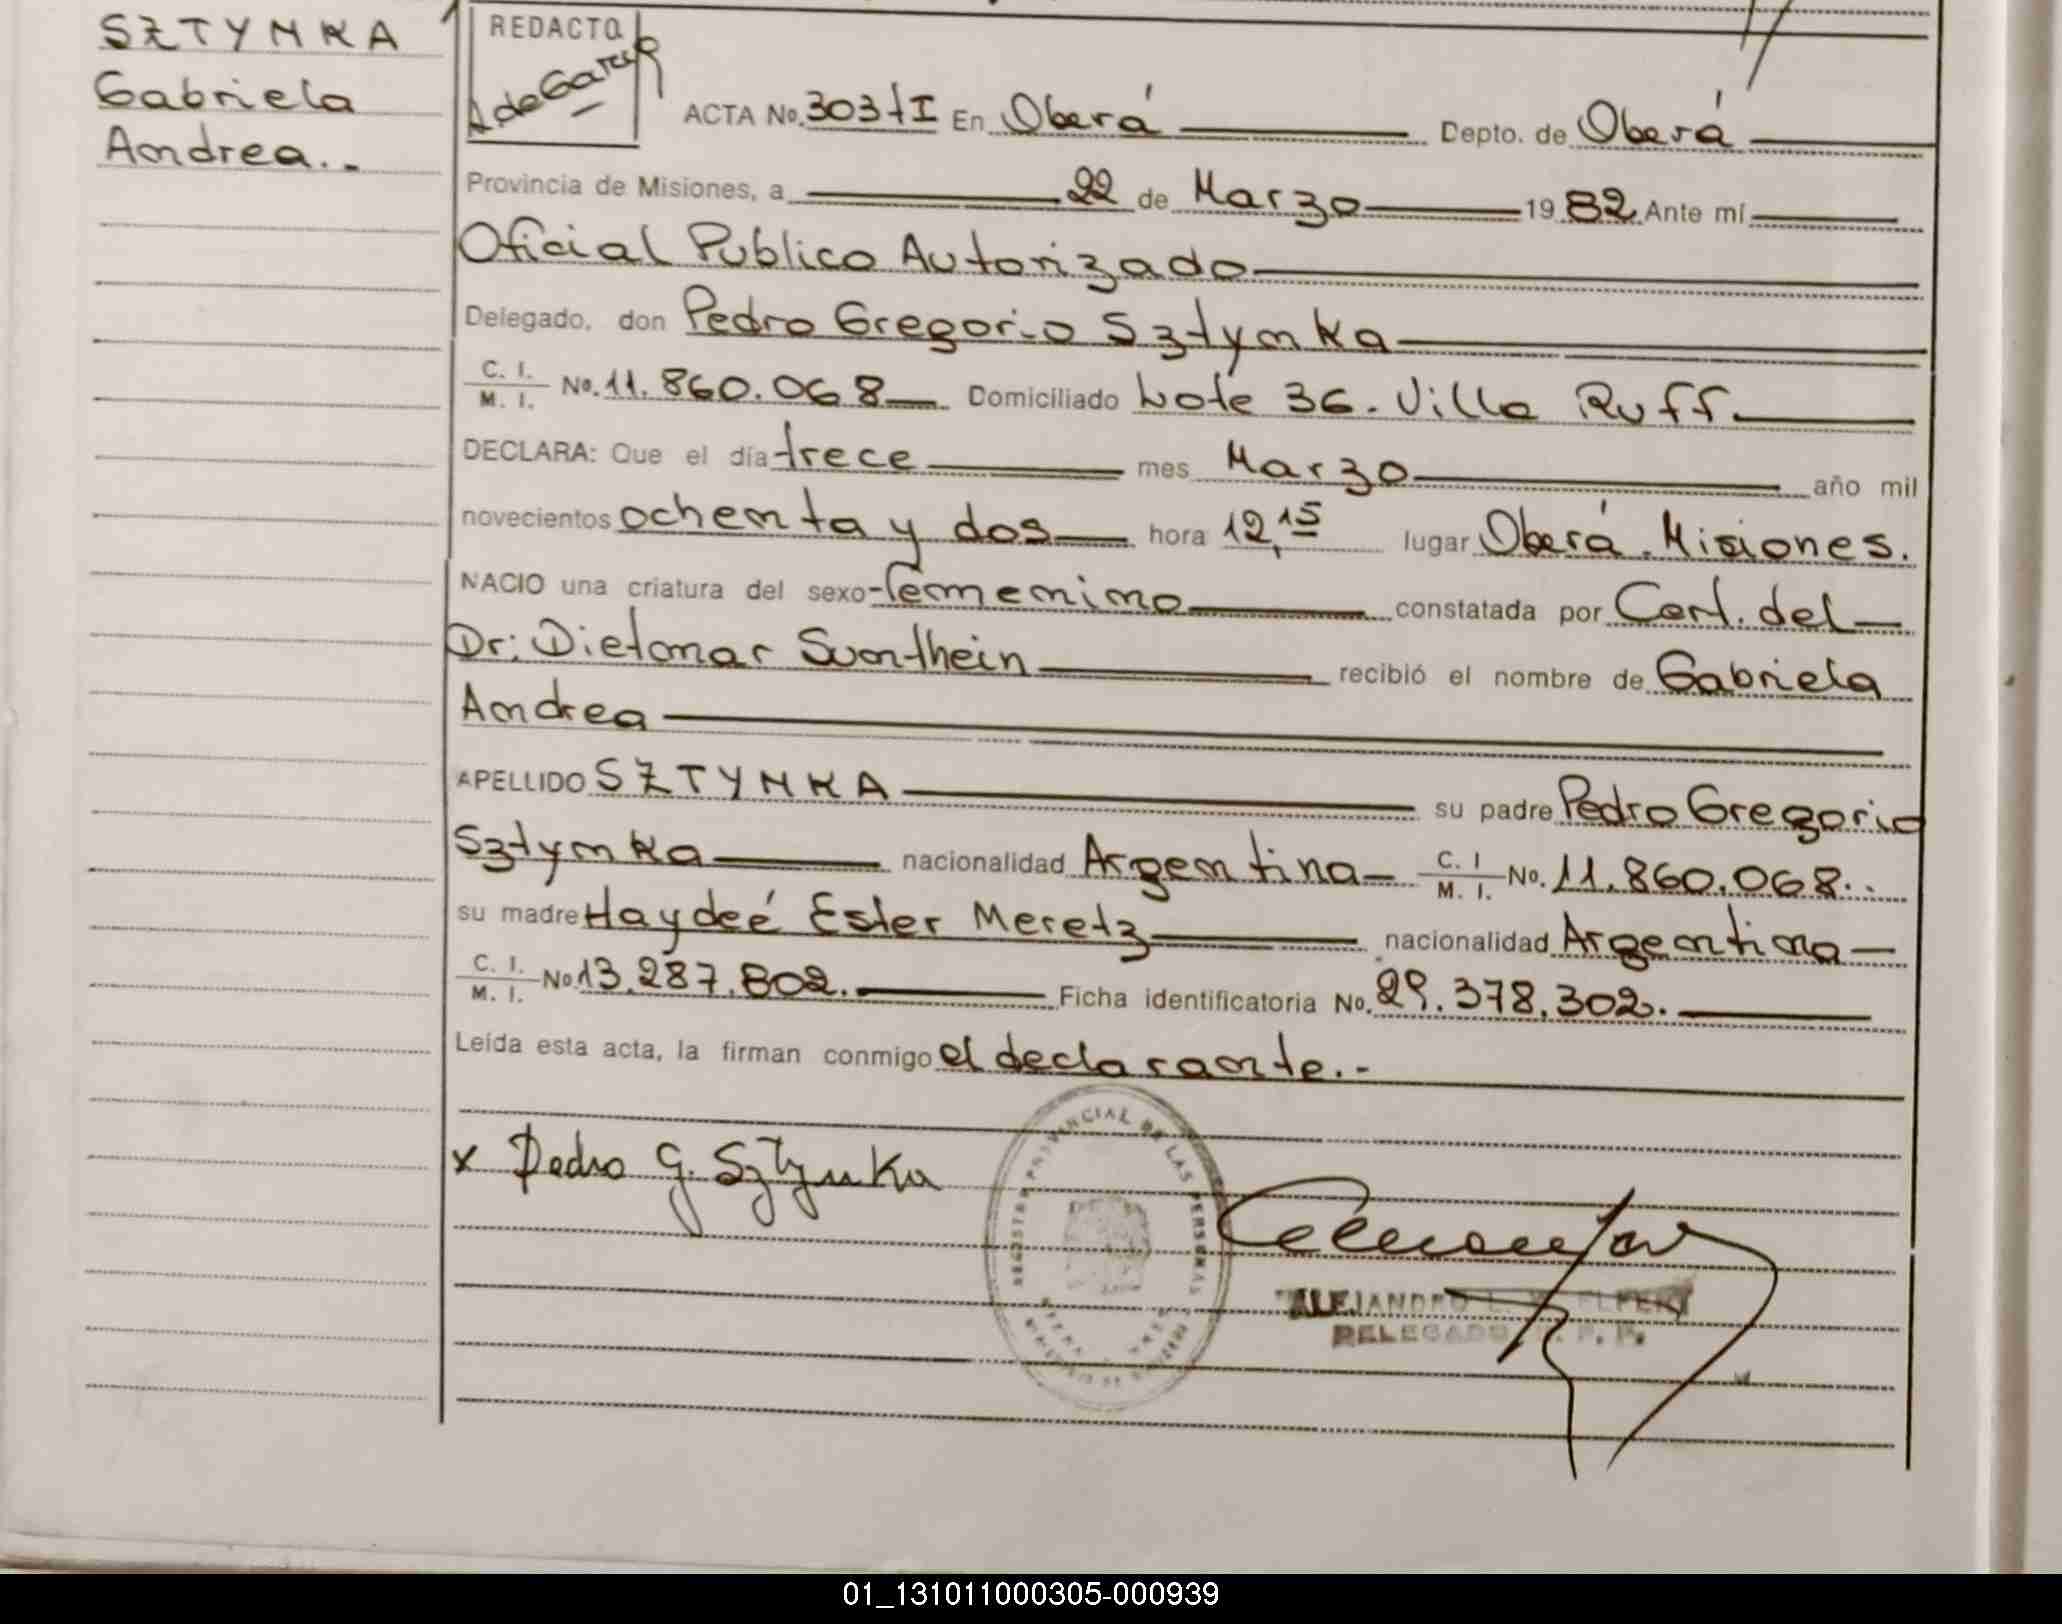 SZTYNKA
Gabriela
Andrea.-
REDACTO
A de Garcia
ACTA No. 303 tI En Oberá Depto. de Oberá
Provincia de Misiones, a 22 de Marzo 1982 Ante mí
Oficial Publico Autorizado
Delegado, don Pedro Gregorio Sztynka
C. I. / M. I. No. 11.860.068 Domiciliado Lote 36. Villa Ruff
DECLARA: Que el día trece mes Marzo año mil
novecientos ochenta y dos hora 12,15 lugar Oberá. Misiones.
NACIO una criatura del sexo femenino constatada por Cert. del
Dr: Dietmar Sunthein recibió el nombre de Gabriela
Andrea
APELLIDO SZTYNKA su padre Pedro Gregorio
Sztynka nacionalidad Argentina C. I / M. I. No. 11.860.068..
su madre Haydeé Ester Meretz nacionalidad Argentina
C. I. / M. I. No. 13.287.802. Ficha identificatoria No. 29.378.302.
Leída esta acta, la firman conmigo el declarante.-
x Pedro G. Sztynka
REGISTRO PROVINCIAL DE LAS PERSONAS
ALEJANDRO L.
DELEGADO R. P. P.
01_131011000305-000939